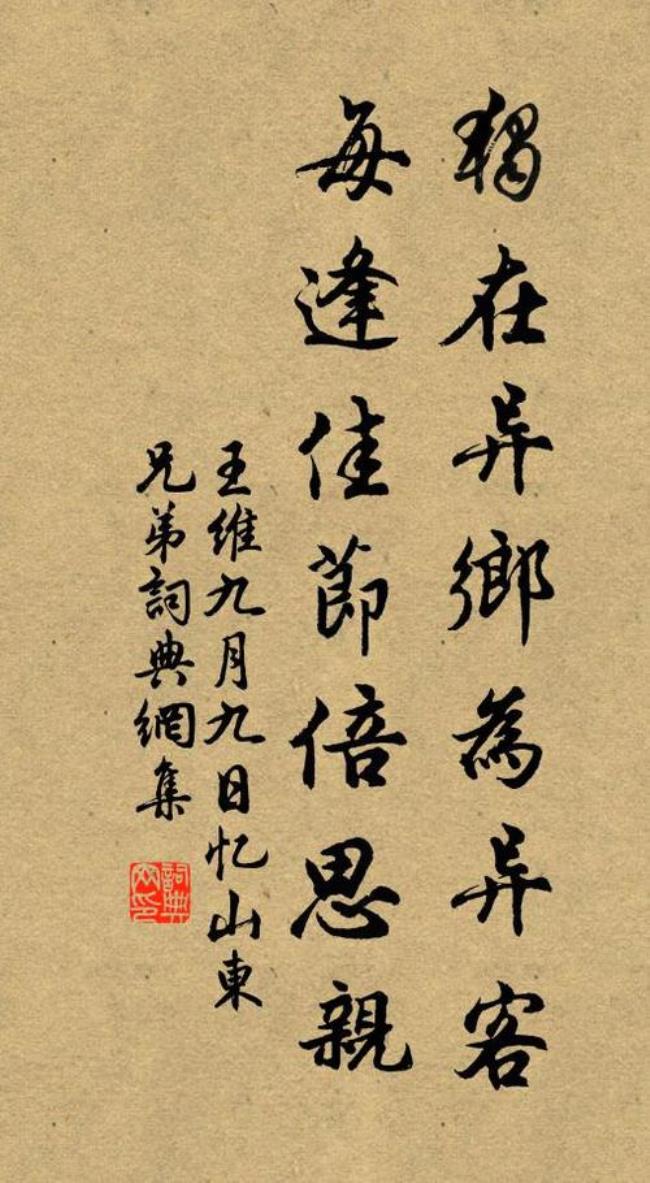 獨在异鄉為异客
每逢佳節倍思親
王維九月九日忆山東
兄弟詞典網集
詞典
网印